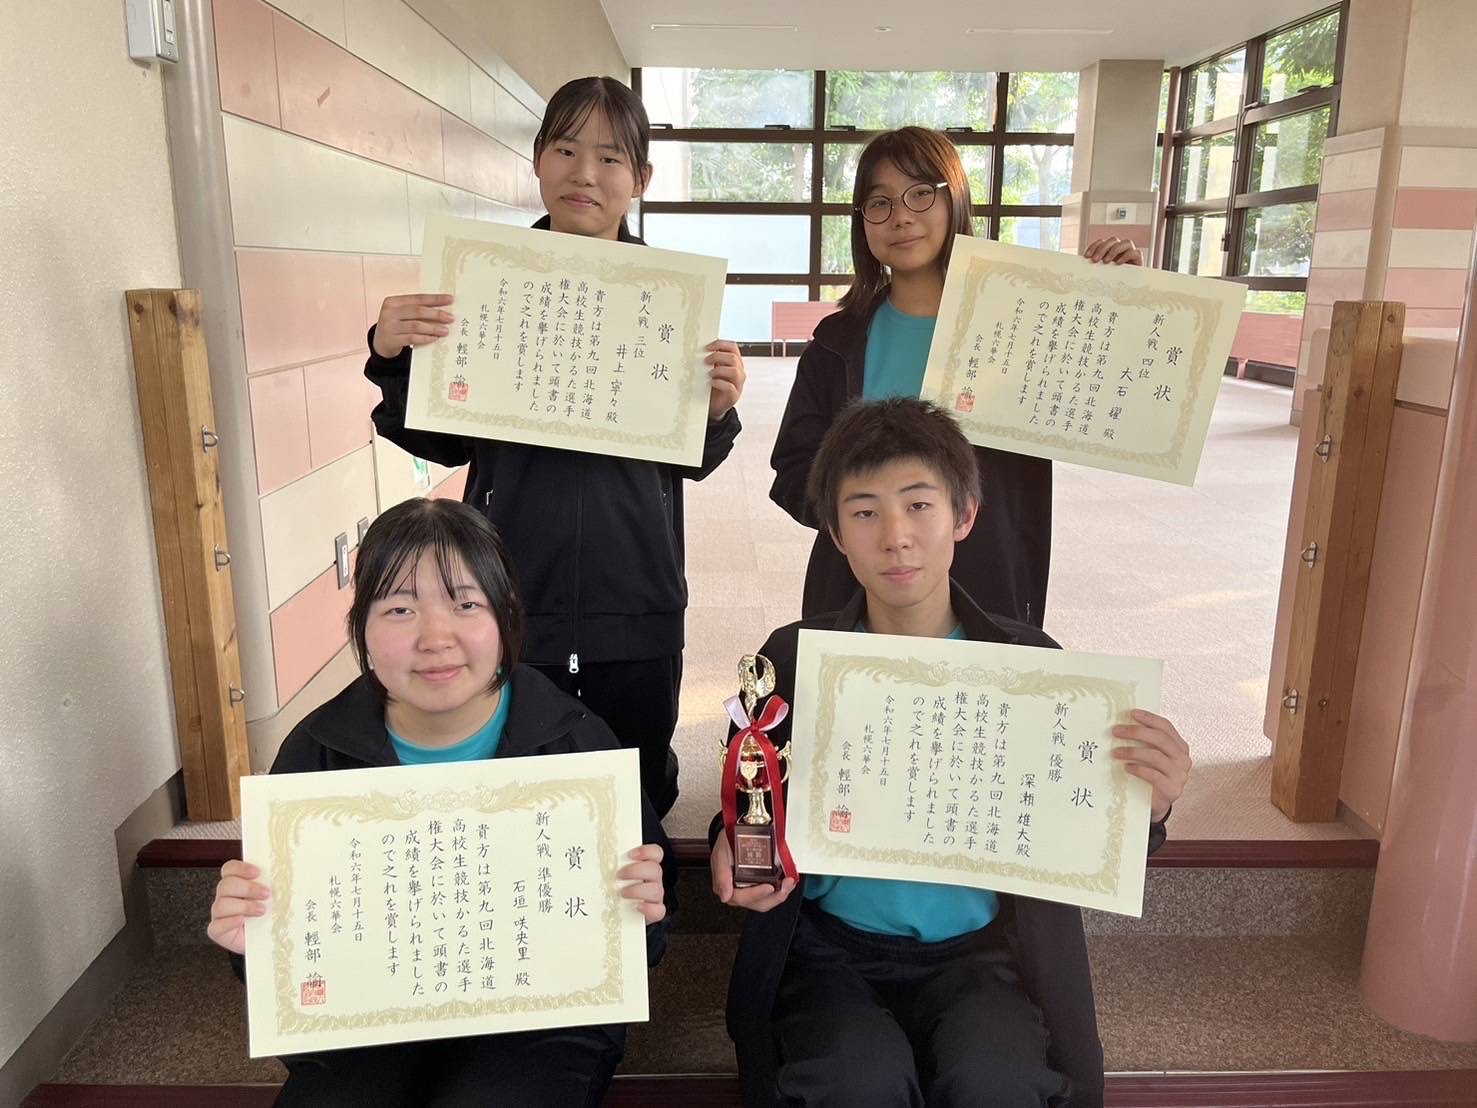 賞状
新人戦 三位
井上寧々殿
貴方は第九回北海道
高校生競技かるた選手
権大会に於いて頭書の
成績を挙げられました
ので之れを賞します
令和六年七月十五日
札幌六華会
会長 輕部
賞状
新人戦 四位
大石 耀殿
貴方は第九回北海道
高校生競技かるた選手
権大会に於いて頭書の
成績を挙げられました
ので之れを賞します
令和六年七月十五日
札幌六華会
会長 輕部
賞状
新人戦 準優勝
石垣 咲央里 殿
貴方は第九回北海道
高校生競技かるた選手
権大会に於いて頭書の
成績を挙げられました
ので之れを賞します
令和六年七月十五日
札幌六華会
会長 輕部
賞状
新人戦 優勝
深瀬 雄大殿
貴方は第九回北海道
高校生競技かるた選手
権大会に於いて頭書の
成績を挙げられました
ので之れを賞します
令和六年七月十五日
札幌六華会
会長 輕部